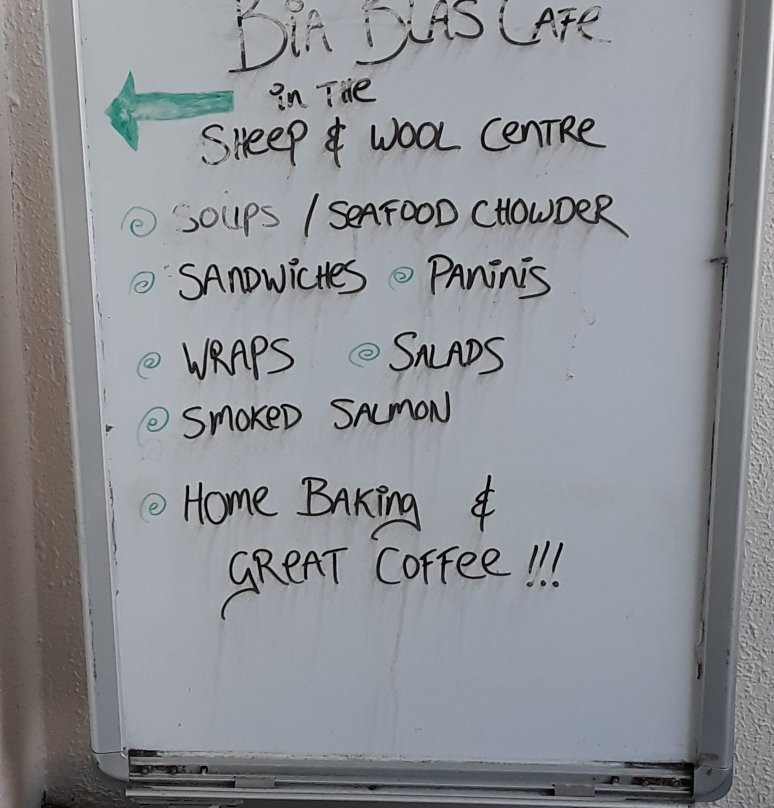 BIA BLAS CAFE
in THE
SHEEP & WOOL CENTRE
SOUPS / SEAFOOD CHOWDER
SANDWICHES PANINIS
WRAPS SALADS
SMOKED SALMON
HOME BAKING &
GREAT COFFEE !!!